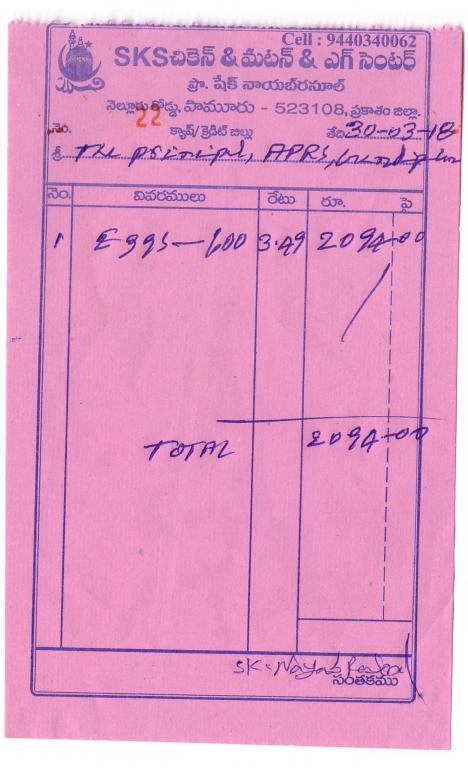 Cell : 9440340062
SKS చికెన్ & మటన్ & ఎగ్ సెంటర్
ప్రొ. షేక్ నాయబ్‌రసూల్
నెల్లూరు రోడ్డు, పామూరు - 523108, ప్రకాశం జిల్లా.
నెం. 22 క్యాష్/క్రెడిట్ బిల్లు తేది 30-03-18
శ్రీ The principal, APRS,
నెం. వివరములు రేటు రూ. పై
1 Eggs - 600 3.49 2094-00
TOTAL 2094-00
SK. Nayab Rasool
సంతకము